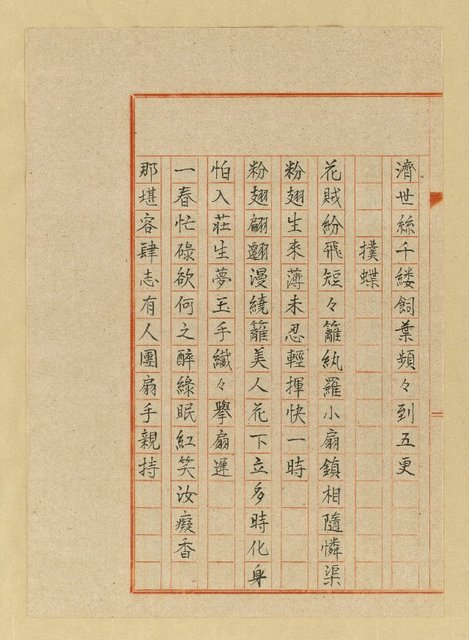 濟世絲千縷飼葉頻々到五更
撲蝶
花賊紛飛短々籬紈羅小扇鎮相隨憐渠
粉翅生來薄未忍輕揮快一時
粉翅翩翾漫繞籬美人花下立多時化身
怕入莊生夢玉手纖々擧扇遲
一春忙碌欲何之醉綠眠紅笑汝癡香
那堪容肆志有人團扇手親持